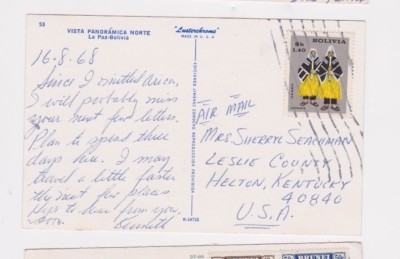 53
VISTA PANORÁMICA NORTE
La Paz-Bolivia
"Lusterchrome"
MADE IN U.S.A.
16-8-68
Since I omitted Arica,
I will probably miss
your next few letters.
Plan to spend three
days here. I may
travel a little faster
the next few places.
Hope to hear from you,
soon.
Kenneth
BOLIVIA
$b
1.40
AIR MAIL
MRS. SHERRY SEACHMAN
LESLIE COUNTY
HELTON, KENTUCKY
40840
U.S.A.
BRUNEI